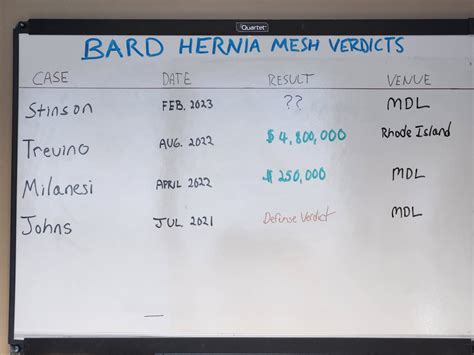 Quartet
BARD HERNIA MESH VERDICTS
CASE DATE RESULT VENUE
Stinson FEB. 2023 ?? MDL
Trevino AUG. 2022 $4,800,000 Rhode Island
Milanesi APRIL 2022 $250,000 MDL
Johns JUL. 2021 Defense Verdict MDL